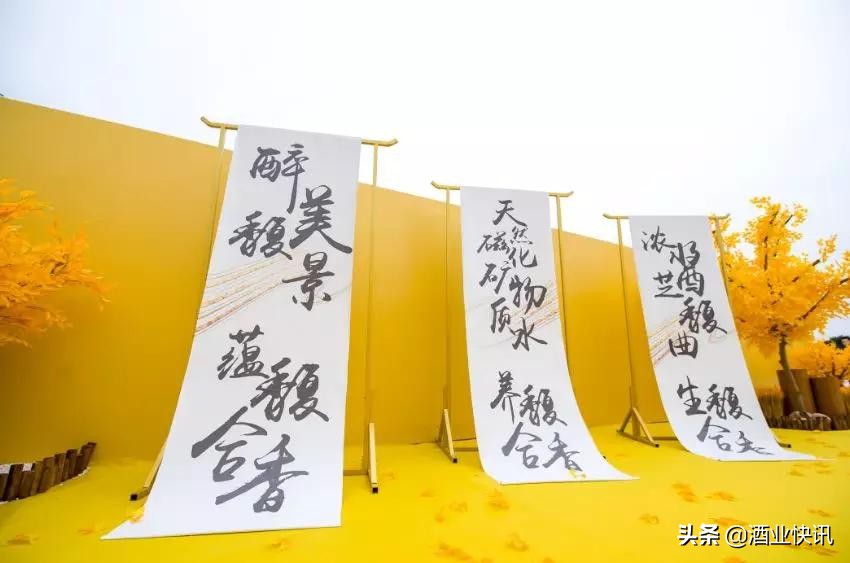 醉美馥景
蕴馥合香
天然磁化矿物质水
养馥合香
浓酱芝馥曲
生馥合香
头条 @酒业快讯